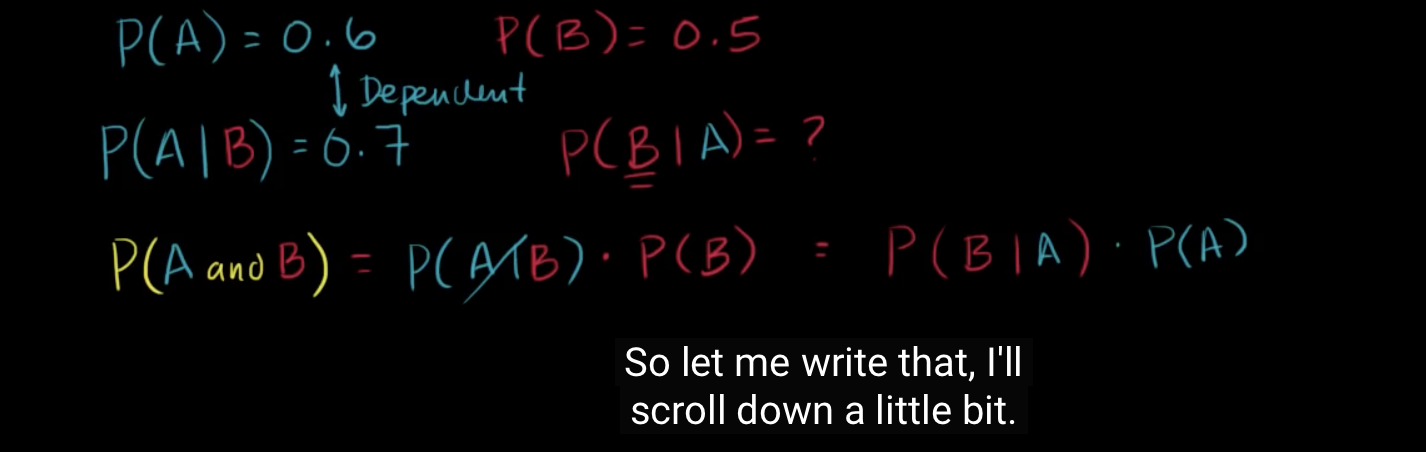 P(A) = 0.6 P(B) = 0.5
↕ Dependent
P(A|B) = 0.7 P(B|A) = ?
P(A and B) = P(A|B) · P(B) = P(B|A) · P(A)
So let me write that, I'll
scroll down a little bit.